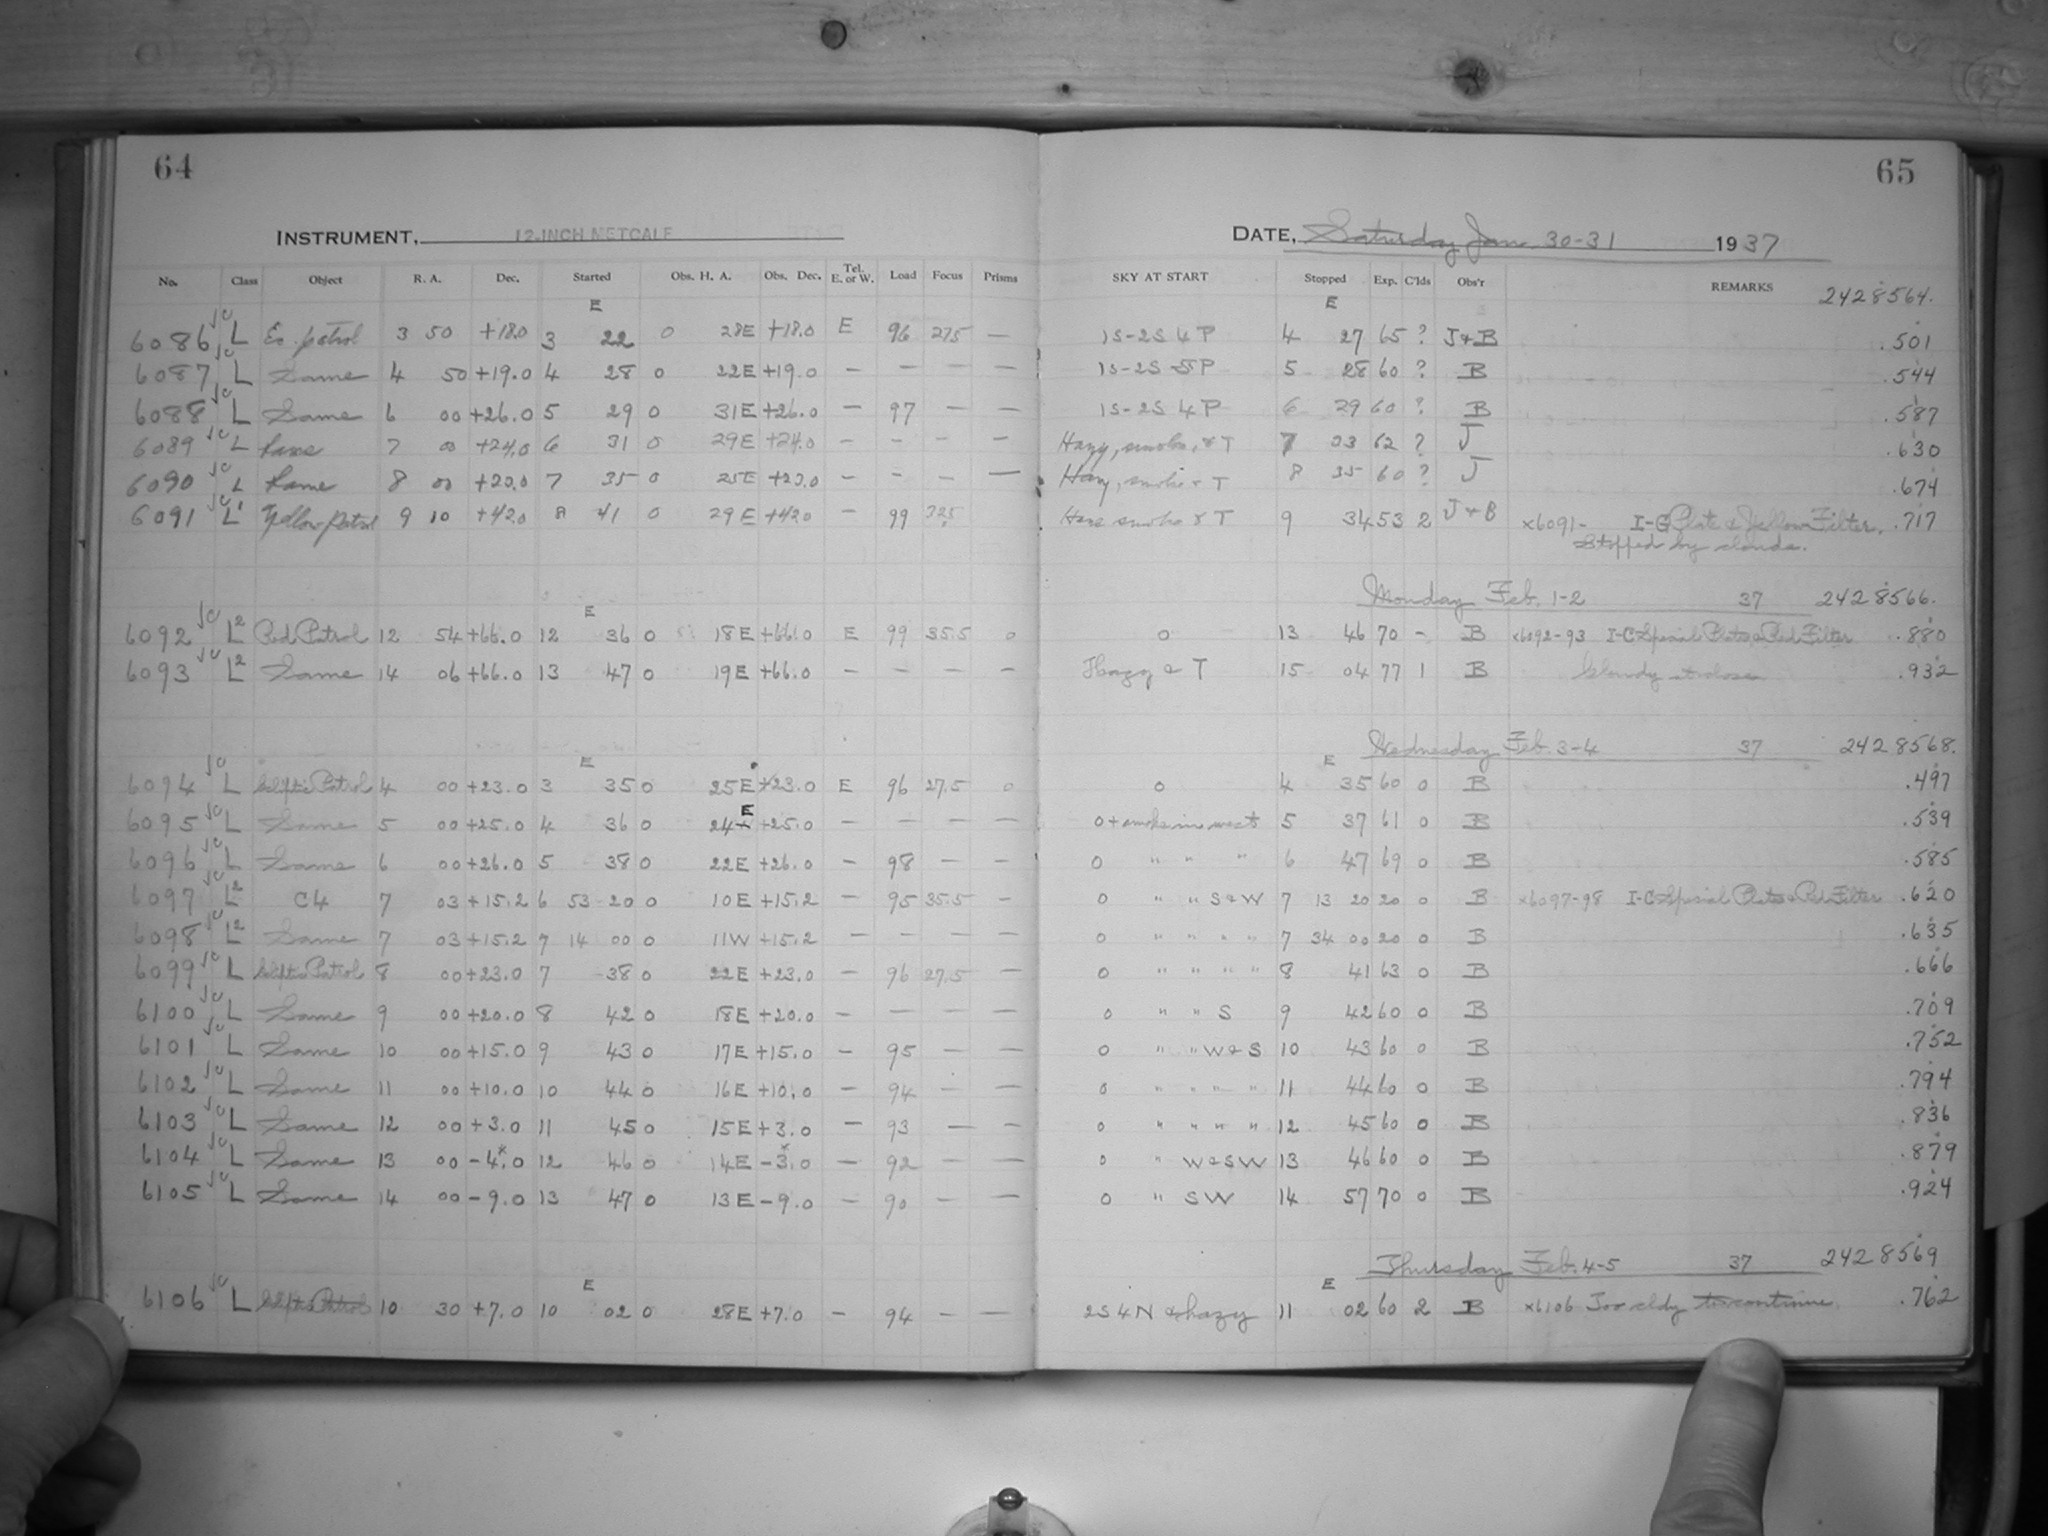 64
INSTRUMENT, 12-INCH METCALF
No. Class Object R. A. Dec. Started Obs. H. A. Obs. Dec. Tel. E. or W. Load Focus Prisms
E
6086 L Ec. patrol 3 50 +18.0 3 22 0 28E +18.0 E 96 27.5 —
6087 L Same 4 50 +19.0 4 28 0 22E +19.0 — — — —
6088 L Same 6 00 +26.0 5 29 0 31E +26.0 — 97 — —
6089 L Same 7 00 +24.0 6 31 0 29E +24.0 — — — —
6090 L Same 8 00 +20.0 7 35 0 25E +20.0 — — — —
6091 L' Yellow Patrol 9 10 +42.0 8 41 0 29E +42.0 — 99 32.5
E
6092 L2 Red Patrol 12 54 +66.0 12 36 0 18E +66.0 E 99 35.5 0
6093 L2 Same 14 06 +66.0 13 47 0 19E +66.0 — — — —
E
6094 L Eclptic Patrol 4 00 +23.0 3 35 0 25E +23.0 E 96 27.5 0
6095 L Same 5 00 +25.0 4 36 0 24E +25.0 — — — —
6096 L Same 6 00 +26.0 5 38 0 22E +26.0 — 98 — —
6097 L2 C4 7 03 +15.2 6 53 20 0 10E +15.2 — 95 35.5 —
6098 L2 Same 7 03 +15.2 7 14 00 0 11W +15.2 — — — —
6099 L Eclptic Patrol 8 00 +23.0 7 38 0 22E +23.0 — 96 27.5 —
6100 L Same 9 00 +20.0 8 42 0 18E +20.0 — — — —
6101 L Same 10 00 +15.0 9 43 0 17E +15.0 — 95 — —
6102 L Same 11 00 +10.0 10 44 0 16E +10.0 — 94 — —
6103 L Same 12 00 +3.0 11 45 0 15E +3.0 — 93 — —
6104 L Same 13 00 -4.0 12 46 0 14E -3.0 — 92 — —
6105 L Same 14 00 -9.0 13 47 0 13E -9.0 — 90 — —
E
6106 L Eclptic Patrol 10 30 +7.0 10 02 0 28E +7.0 — 94 — —
65
DATE, Saturday Jan. 30-31 1937
SKY AT START Stopped Exp. C'lds Obs'r REMARKS 2428564.
E
1S-2S 4P 4 27 65 ? J+B .501
1S-2S 5P 5 28 60 ? B .544
1S-2S 4P 6 29 60 ? B .587
Hazy, smoke, & T 7 33 62 ? J .630
Hazy, smoke & T 8 35 60 ? J .674
Haze smoke & T 9 34 53 2 J+B x6091- I-G Plate & Yellow Filter. .717
Stopped by clouds.
Monday Feb. 1-2 37 2428566.
0 13 46 70 - B x6092-93 I-C Special Plates & Red Filter .880
Hazy & T 15 04 77 1 B Cloudy at close .932
Wednesday Feb. 3-4 37 2428568.
E
0 4 35 60 0 B .497
0 + smoke in west 5 37 61 0 B .539
0 " " " 6 47 69 0 B .585
0 " " S & W 7 13 20 20 0 B x6097-98 I-C Special Plates & Red Filter .620
0 " " " " 7 34 00 20 0 B .635
0 " " " " 8 41 63 0 B .666
0 " " S 9 42 60 0 B .709
0 " " W & S 10 43 60 0 B .752
0 " " " " 11 44 60 0 B .794
0 " " " " 12 45 60 0 B .836
0 " W & SW 13 46 60 0 B .879
0 " SW 14 57 70 0 B .924
Thursday Feb. 4-5 37 2428569
E
2S 4N & hazy 11 02 60 2 B x6106 Too cldy to continue. .762